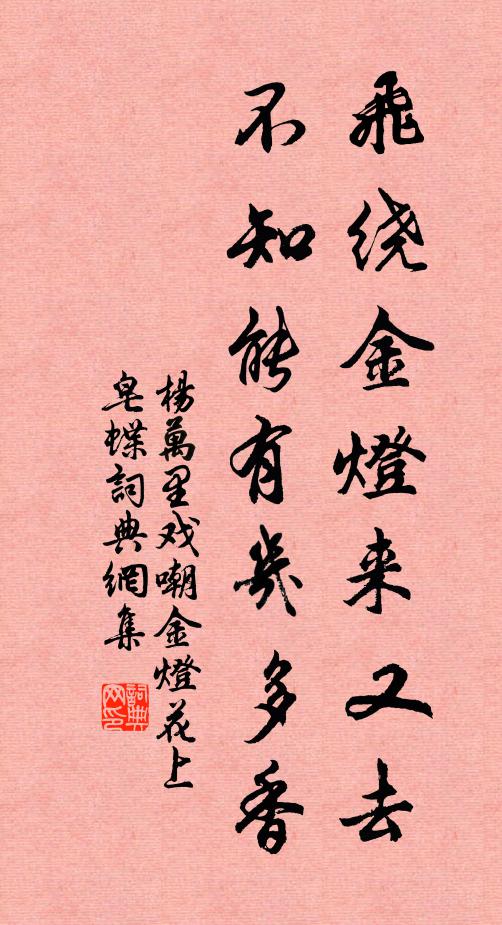 飛绕金燈来又去
不知能有幾多香
楊萬里戏嘲金燈花上
皂蝶詞典網集
詞典网印